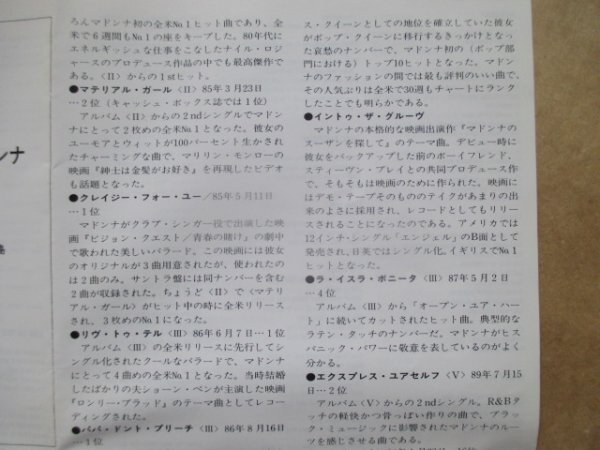 ろんマドンナ初の全米No.1ヒット曲であり、全
米で6週間もNo.1の座をキープした。80年代に
エネルギッシュな仕事をこなしたナイル・ロジ
ャースのプロデュース作品の中でも最高傑作で
ある。〈II〉からの1stヒット。
●マテリアル・ガール〈II〉85年3月23日
…2位（キャッシュ・ボックス誌では1位）
アルバム〈II〉からの2ndシングルでマドン
ナにとって2枚めの全米No.1となった。彼女の
ユーモアとウィットが100パーセント生かされ
たチャーミングな曲で、マリリン・モンローの
映画『紳士は金髪がお好き』を再現したビデオ
も話題となった。
●クレイジー・フォー・ユー/85年5月11日
…1位
マドンナがクラブ・シンガー役で出演した映
画『ビジョン・クエスト/青春の賭け』の劇中
で歌われた美しいバラード。この映画には彼女
のオリジナルが3曲用意されたが、使われたの
は2曲のみ。サントラ盤には同ナンバーを含む
2曲が収録された。ちょうど〈II〉で〈マテリ
アル・ガール〉がヒット中の時に全米リリース
され、3枚めのNo.1になった。
●リヴ・トゥ・テル〈III〉86年6月7日…1位
アルバム〈III〉の全米リリースに先行してシ
ングル化されたクールなバラードで、マドンナ
にとって4曲めの全米No.1となった。当時結婚
したばかりの夫ショーン・ペンが主演した映画
『ロンリー・ブラッド』のテーマ曲としてレコー
ディングされた。
●パパ・ドント・プリーチ〈III〉86年8月16日
…1位
ス・クイーンとしての地位を確立していた彼女
がポップ・クイーンに移行するきっかけとなっ
た哀愁のナンバーで、マドンナ初の（ポップ部
門における）トップ10ヒットとなった。マドン
ナのファッションの間では最も評判のいい曲で、
その人気ぶりは全米で30週もチャートにランク
したことでも明らかである。
●イントゥ・ザ・グルーヴ
マドンナの本格的な映画出演作『マドンナの
スーザンを探して』のテーマ曲。デビュー時に
彼女をバックアップした前のボーイフレンド、
スティーヴン・ブレイとの共同プロデュース作
で、そもそもは映画のために作られた。映画に
はデモ・テープそのもののテイクがあまりの出
来のよさに採用され、レコードとしてもリリー
スされることになったのである。アメリカでは
12インチ・シングル「エンジェル」のB面として
発売され、日英ではシングル化。イギリスでNo.1
ヒットとなった。
●ラ・イスラ・ボニータ〈III〉87年5月2日
…4位
アルバム〈III〉から「オープン・ユア・ハー
ト」に続いてカットされたヒット曲。典型的な
ラテン・タッチのナンバーだ。マドンナがヒス
パニック・パワーに敬意を表しているのがよく
分かる。
●エクスプレス・ユアセルフ〈V〉89年7月15
日…2位
アルバム〈V〉からの2ndシングル。R&Bタ
ッチの軽快かつ骨っぽい作りの曲で、ブラッ
ク・ミュージックに影響されたマドンナのルー
ツを感じさせる曲である。
ンナ